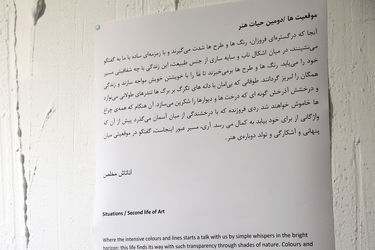 موقعیت ها /دومین حیات هنر
آنجا که درگستره‌ای فروزان، رنگ ها و طرح ها شدت می‌گیرند و با زمزمه‌ای ساده با ما به گفتگو
می‌نشینند، در میان اشکال ناب و سایه ساری از جنس طبیعت، این زندگی با چه شفافیتی مسیر
خود را می‌یابد. رنگ ها و طرح ها برمی‌خیزند تا ما را با خویشتن خویش مواجه سازند و زندگی
همگان را لبریز گردانند. طوفانی که بی‌امان با دانه های تگرگ بر برگ ها تندرهای طولانی می‌وارد
و درخشش آذرخش گونه ای که درخت ها و دیوارها را شکرین می‌سازد. آن هنگام که همه‌ی چراغ
ها خاموش خواهند شد، ردی فروزنده که با درخشندگی از میان آسمان می‌گذرد پیش از آن که
واژگانی از برای خود بیابد به کمال می رسد. آری، مسیر عبور اینجاست، گفتگو در موقعیتی میان
پنهانی و آشکارگی و تولد دوباره‌ی هنر.
آناکاش مخلص
Situations / Second life of Art
Where the intensive colours and lines starts a talk with us by simple whispers in the bright
horizon; this life finds its way with such transparency through shades of nature. Colours and